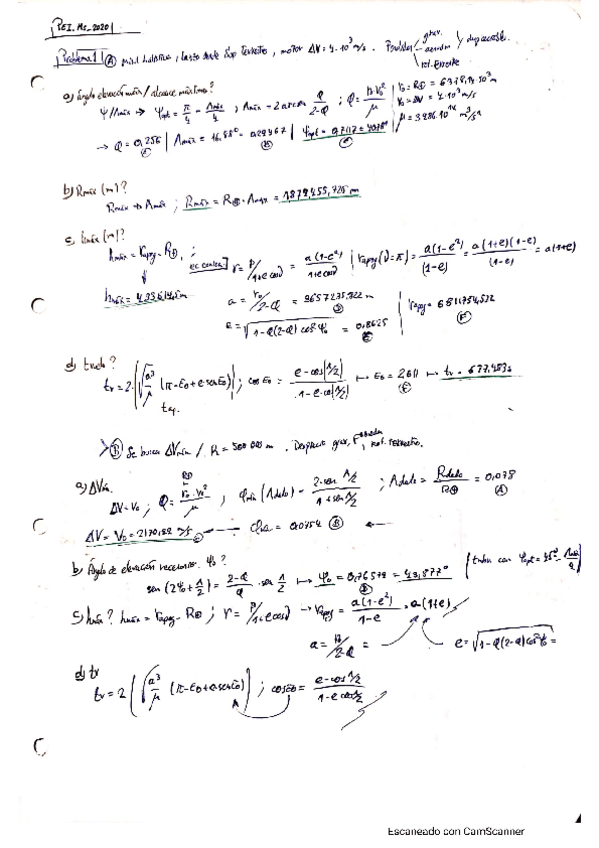 PEI. Ms_2020
Problema 1 (A) misil balístico, lanzado desde sup terrestre, motor ΔV = 4·10³ m/s. Perdidas grav. aerodin rot. terrestre despreciable.
a) Ángulo elevación máx / alcance máximo?
ψ/Λmáx → φopt = π/4 - Λmáx/4 ; Λmáx = 2 arcsen Q/(2-Q) ; Q = r₀·V₀²/μ
r₀ = R⊕ = 6378,14·10³ m
V₀ = ΔV = 4·10³ m/s
μ = 3,986·10¹⁴ m³/s²
→ Q = 0,256 | Λmáx = 16,88° = 0,29467 | φopt = 0,7117 = 40,78°
b) Rmáx (m)?
Rmáx → Λmáx ; Rmáx = R⊕·Λmáx = 1879455,725 m
c) hmáx (m)?
hmáx = rapog - R⊕ ;
ec conica r = p/(1+e cosϑ) = a(1-e²)/(1+e cosϑ) | rapog (ϑ=π) = a(1-e²)/(1-e) = a(1+e)(1-e)/(1-e) = a(1+e)
a = r₀/(2-Q) = 3657235,722 m
e = √(1-Q(2-Q) cos²φ₀) = 0,8625
d) t vuelo?
tv = 2·(√(a³/μ) (π-E₀+e senE₀)) ; cos E₀ = (e-cos(Λ/2))/(1-e cos(Λ/2)) → E₀ = 2,611 → tv = 677,453 s
(B) Se busca ΔVmín / R = 500 000 m. Despreciar grav, rot. terrestre.
a) ΔVmín.
ΔV = V₀ ; Q = r₀·V₀²/μ ; Qmín (Λdado) = 2·sen Λ/2 / (1+sen Λ/2) ; Λdado = Rdado/R⊕ = 0,078 (A)
ΔV = V₀ = 2170,82 m/s ← Qmín = 0,0754 (B) ←
b) Ángulo de elevación necesario. φ₀?
sen (2φ₀ + Λ/2) = (2-Q)/Q · sen Λ/2 → φ₀ = 0,76579 = 43,877°
c) hmáx? hmáx = rapog - R⊕ ; r = p/(1+e cosϑ) → rapog = a(1-e²)/(1-e) = a(1+e)
e = √(1-Q(2-Q)cos²φ₀) =
d) tv
tv = 2 (√(a³/μ) (π-E₀+e senE₀)) ; cosE₀ = (e-cos Λ/2)/(1-e cos Λ/2)
Escaneado con CamScanner